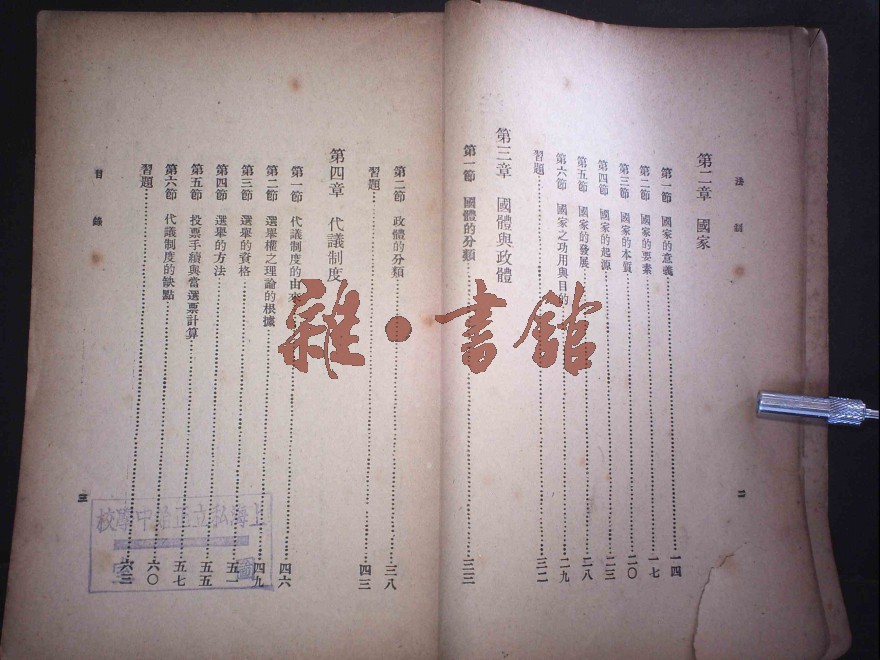 法制
第二章 國家
第一節 國家的意義 一四
第二節 國家的要素 一七
第三節 國家的本質 二〇
第四節 國家的起源 二三
第五節 國家的發展 二八
第六節 國家之功用與目的 二九
習題 三二
第三章 國體與政體
第一節 國體的分類 三三
二
第二節 政體的分類 三八
習題 四三
第四章 代議制度
第一節 代議制度的由來 四六
第二節 選舉權之理論的根據 四九
第三節 選舉的資格 五一
第四節 選舉的方法 五五
第五節 投票手續與當選票計算 五七
第六節 代議制度的缺點 六〇
習題 六三
目錄
三
雜·書館
上海私立正始中學校
圖